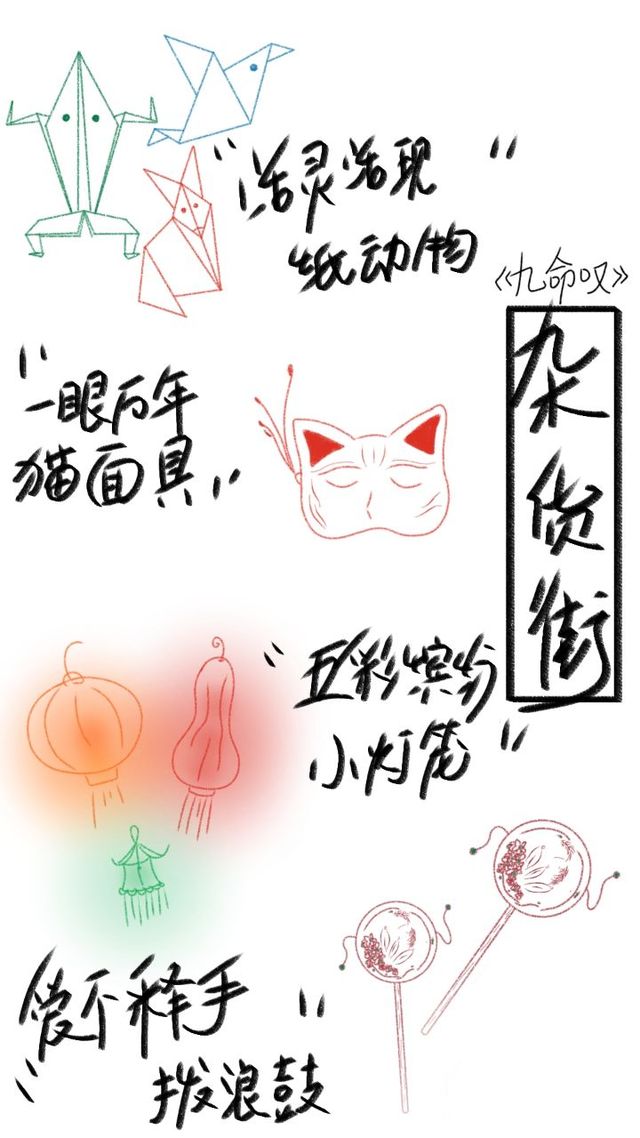 "活灵活现"
纸动物
《九命叹》
杂货街
"一眼万年
猫面具"
"五彩缤纷
小灯笼"
爱不释手"
"拨浪鼓